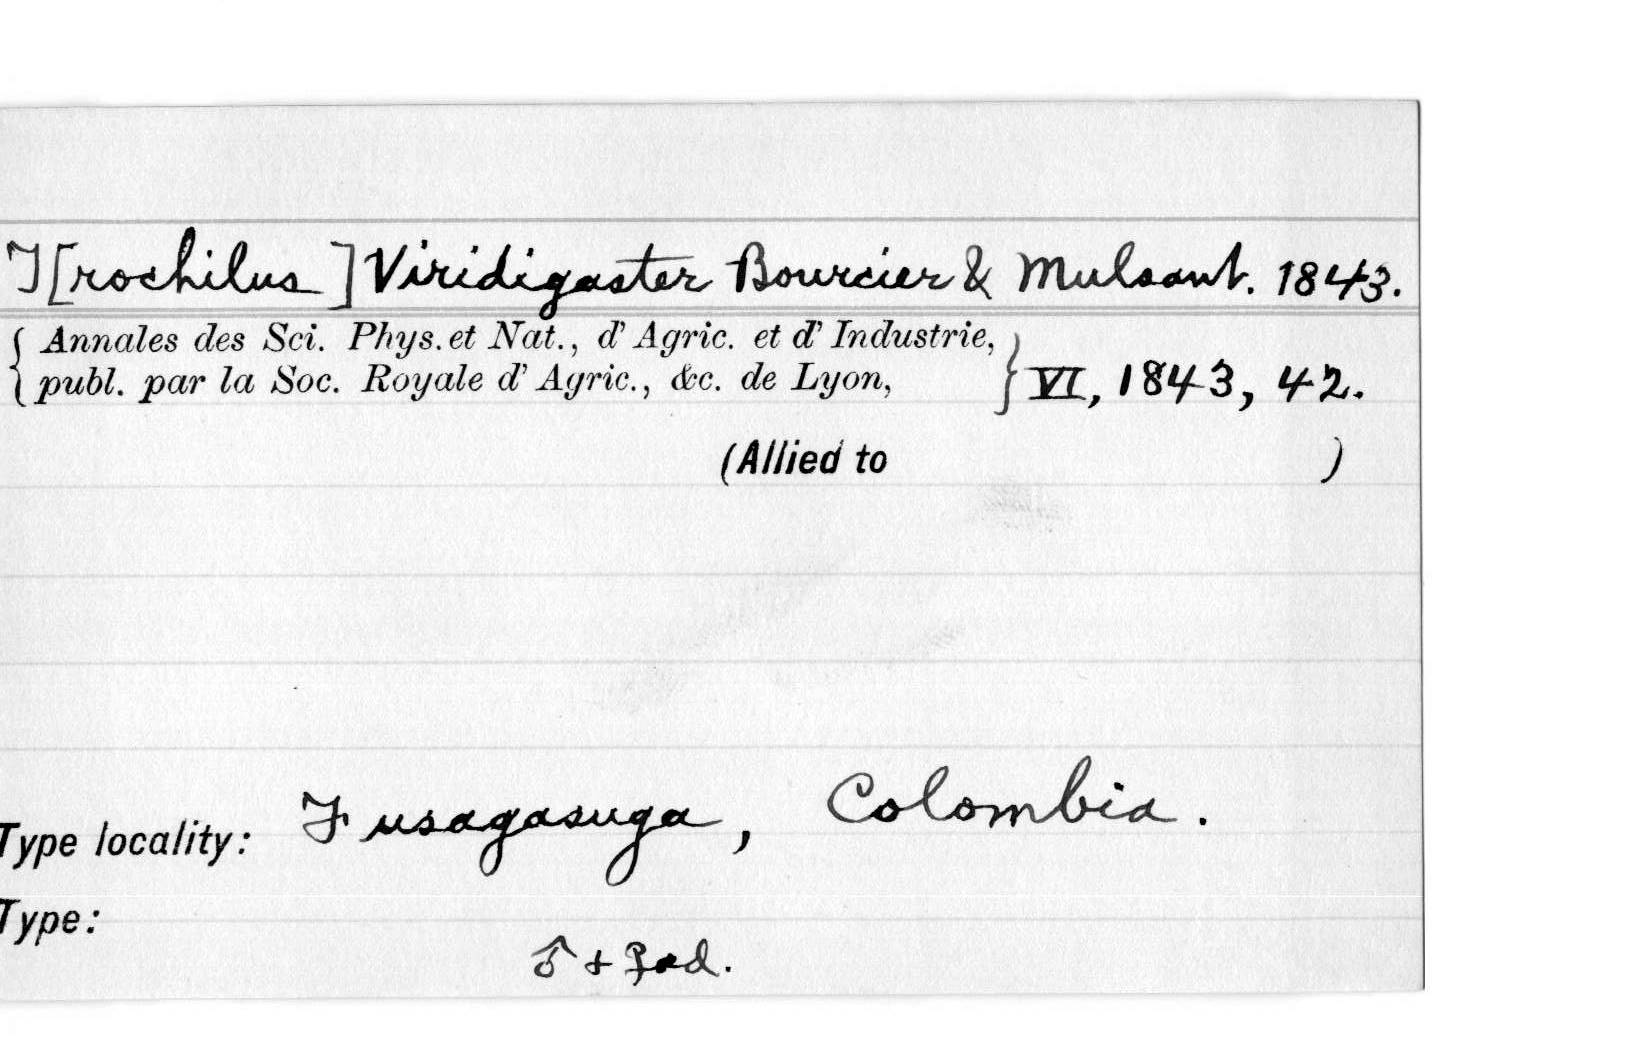 T[rochilus] Viridigaster Bourcier & Mulsant. 1843.
{ Annales des Sci. Phys. et Nat., d' Agric. et d' Industrie,
publ. par la Soc. Royale d' Agric., &c. de Lyon, } VI, 1843, 42.
(Allied to )
Type locality: Fusagasuga, Colombia.
Type:
♂ + ♀ ad.